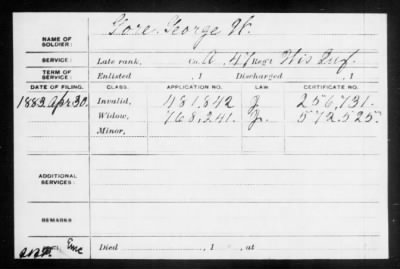 NAME OF SOLDIER: Gore George W.
SERVICE: Late rank, Co. A, 47 Reg't Wis Inf.
TERM OF SERVICE: Enlisted , 1 Discharged , 1
DATE OF FILING. CLASS. APPLICATION NO. LAW CERTIFICATE NO.
1883 Apr 30. Invalid, 481,842 J 256,731.
Widow, 768,241. J. 572,525.
Minor,
ADDITIONAL SERVICES:
REMARKS
Died , 1 , at